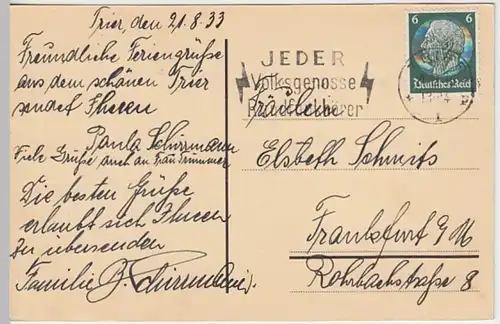 Trier, den 21.8.33
Freundliche Feriengrüße
aus dem schönen Trier
sendet Ihnen
Paula Schirrmann
Viele Grüße auch an Frau Trümmer
Die besten Grüße
erlaubt sich Ihnen
zu übersenden
Familie Schirrmann.
JEDER
Volksgenosse
Rundfunkhörer
6 6
Deutsches Reich
Fräulein
Elsbeth Schmits
Frankfurt a/M
Rohrbachstraße 8